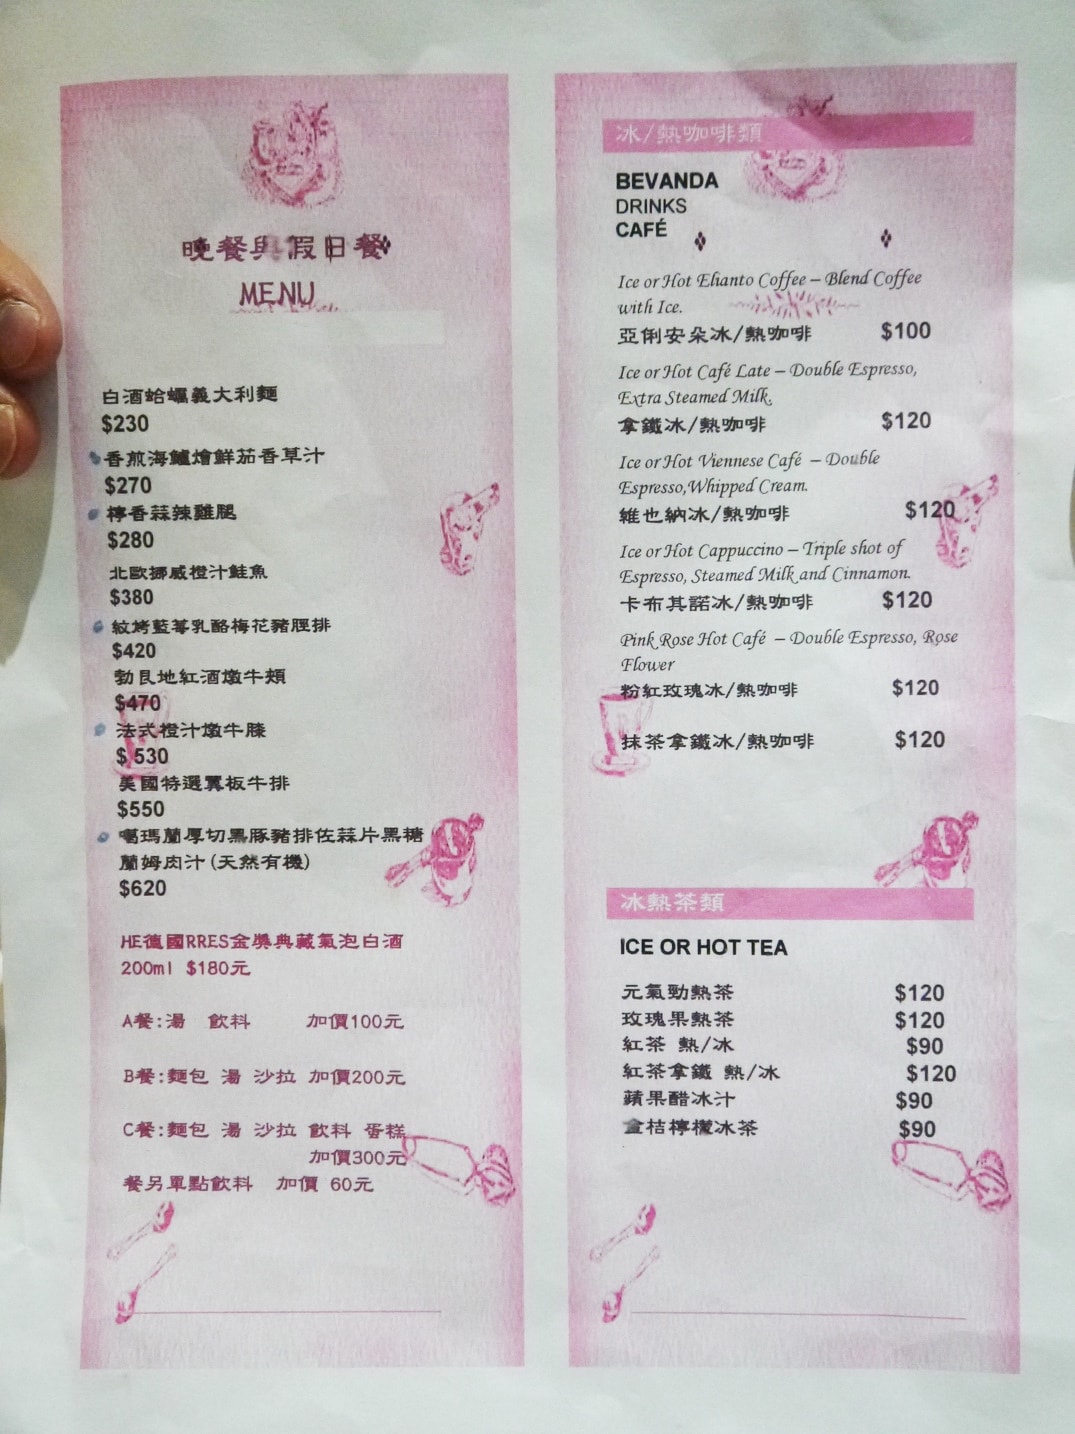 晚餐與假日餐
MENU
白酒蛤蠣義大利麵
$230
香煎海鱸燴鮮茄香草汁
$270
檸香蒜辣雞腿
$280
北歐挪威橙汁鮭魚
$380
紋烤藍莓乳酪梅花豬脛排
$420
勃艮地紅酒燉牛頰
$470
法式橙汁燉牛膝
$530
美國特選翼板牛排
$550
噶瑪蘭厚切黑豚豬排佐蒜片黑糖
蘭姆肉汁(天然有機)
$620
HE德國RRES金獎典藏氣泡白酒
200ml $180元
A餐:湯 飲料 加價100元
B餐:麵包 湯 沙拉 加價200元
C餐:麵包 湯 沙拉 飲料 蛋糕
加價300元
餐另單點飲料 加價 60元
冰/熱咖啡類
BEVANDA
DRINKS
CAFÉ
Ice or Hot Elianto Coffee – Blend Coffee
with Ice.
亞俐安朵冰/熱咖啡 $100
Ice or Hot Café Late – Double Espresso,
Extra Steamed Milk.
拿鐵冰/熱咖啡 $120
Ice or Hot Viennese Café – Double
Espresso,Whipped Cream.
維也納冰/熱咖啡 $120
Ice or Hot Cappuccino – Triple shot of
Espresso, Steamed Milk and Cinnamon.
卡布其諾冰/熱咖啡 $120
Pink Rose Hot Café – Double Espresso, Rose
Flower
粉紅玫瑰冰/熱咖啡 $120
抹茶拿鐵冰/熱咖啡 $120
冰熱茶類
ICE OR HOT TEA
元氣勁熱茶 $120
玫瑰果熱茶 $120
紅茶 熱/冰 $90
紅茶拿鐵 熱/冰 $120
蘋果醋冰汁 $90
金桔檸檬冰茶 $90